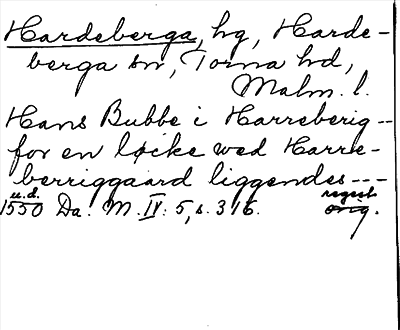 Hardeberga, hg, Harde-
berga sn, Torna hd,
Malm. l.
Hans Bubbe i Harreberig --
for en løcke wed Harre-
berriggaard liggendes ---
u.d. regest
1550 Da. M. IV: 5, s. 316. orig.